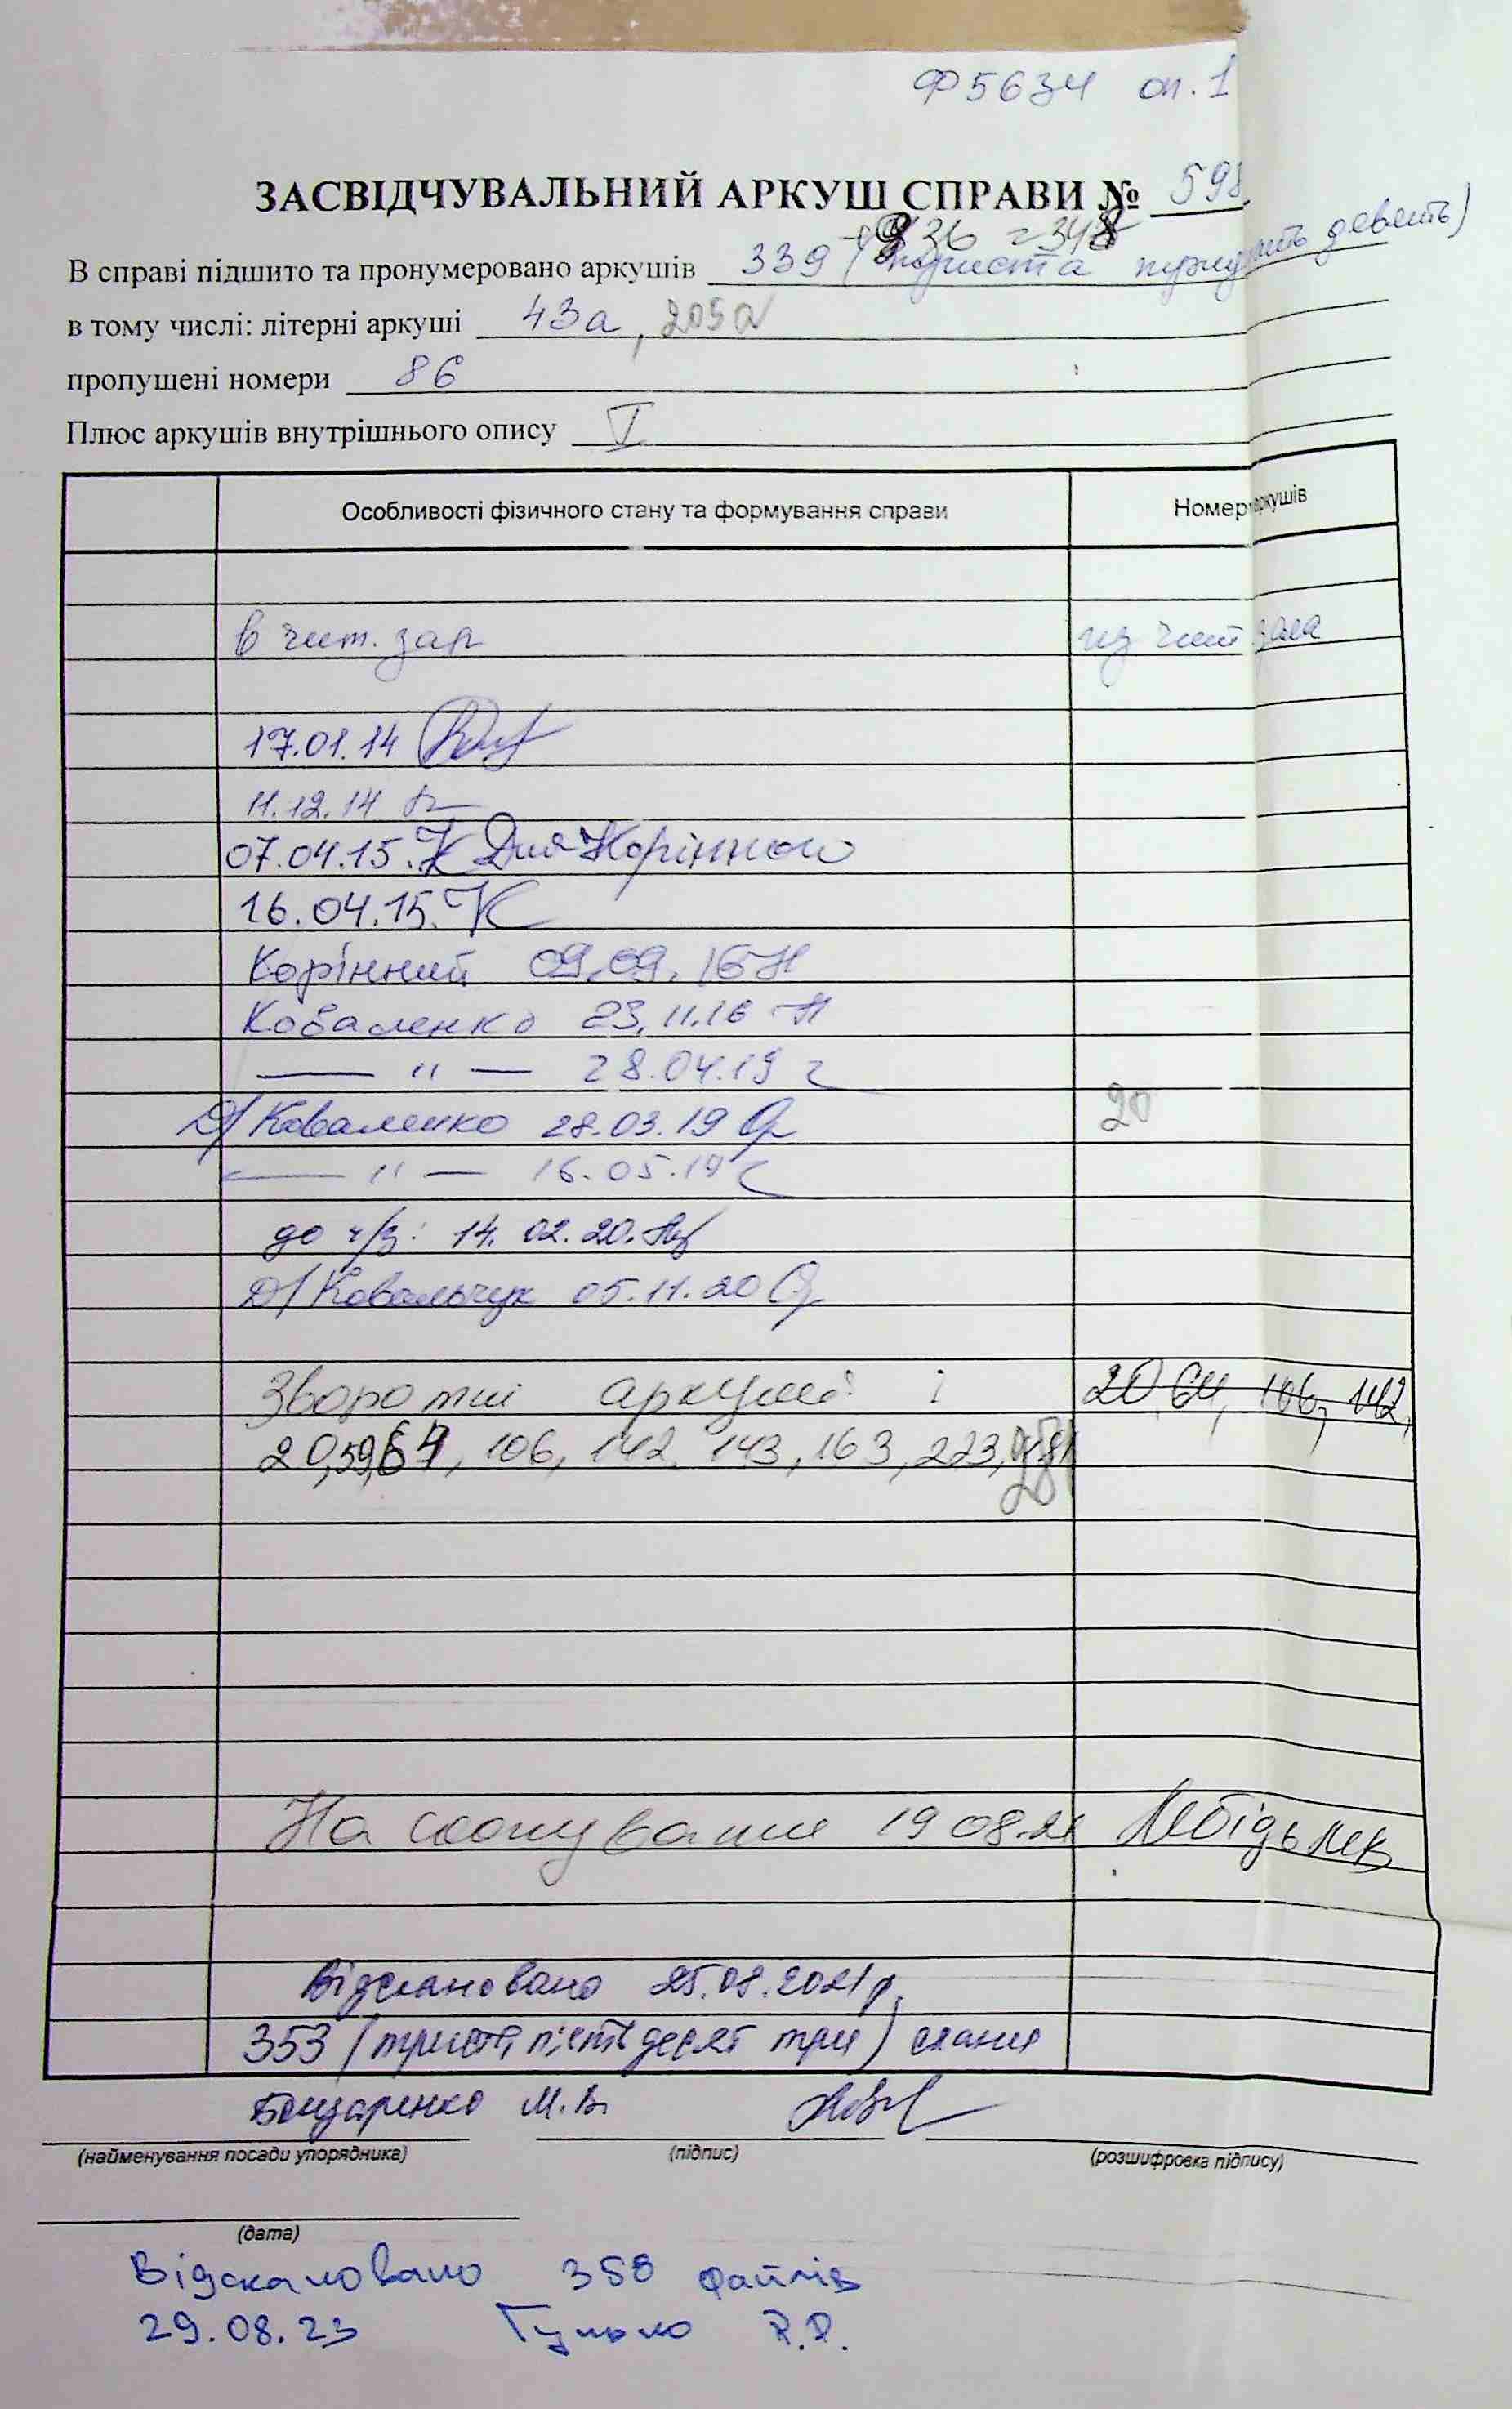 Ф 5634 оп. 1
ЗАСВІДЧУВАЛЬНИЙ АРКУШ СПРАВИ № 598
+9 зв = 348
В справі підшито та пронумеровано аркушів 339 (триста тридцять девять)
в тому числі: літерні аркуші 43а, 205а
пропущені номери 86
Плюс аркушів внутрішнього опису I
Особливості фізичного стану та формування справи Номер аркушів
в чит. зал из чит зала
17.01.14
11.12.14
07.04.15. К Для Корінного
16.04.15. К
Корінний 09.09.16
Коваленко 23.11.16
— " — 28.04.19
Д/Коваленко 28.03.19 20
— " — 16.05.19
до ч/з: 14.02.20.
Д/Ковальчук 05.11.20
Зворотні аркуші: 20, 64, 106, 142,
20, 59, 64, 106, 142, 143, 163, 223,
На сканування 19 08.21
Відскановано 25.08.2021 р.
353 (триста п'ятдесят три) скани
Бондаренко М.В.
(найменування посади упорядника) (підпис) (розшифровка підпису)
(дата)
Відскановано 358 файлів
29.08.23 Гунько Р.Р.